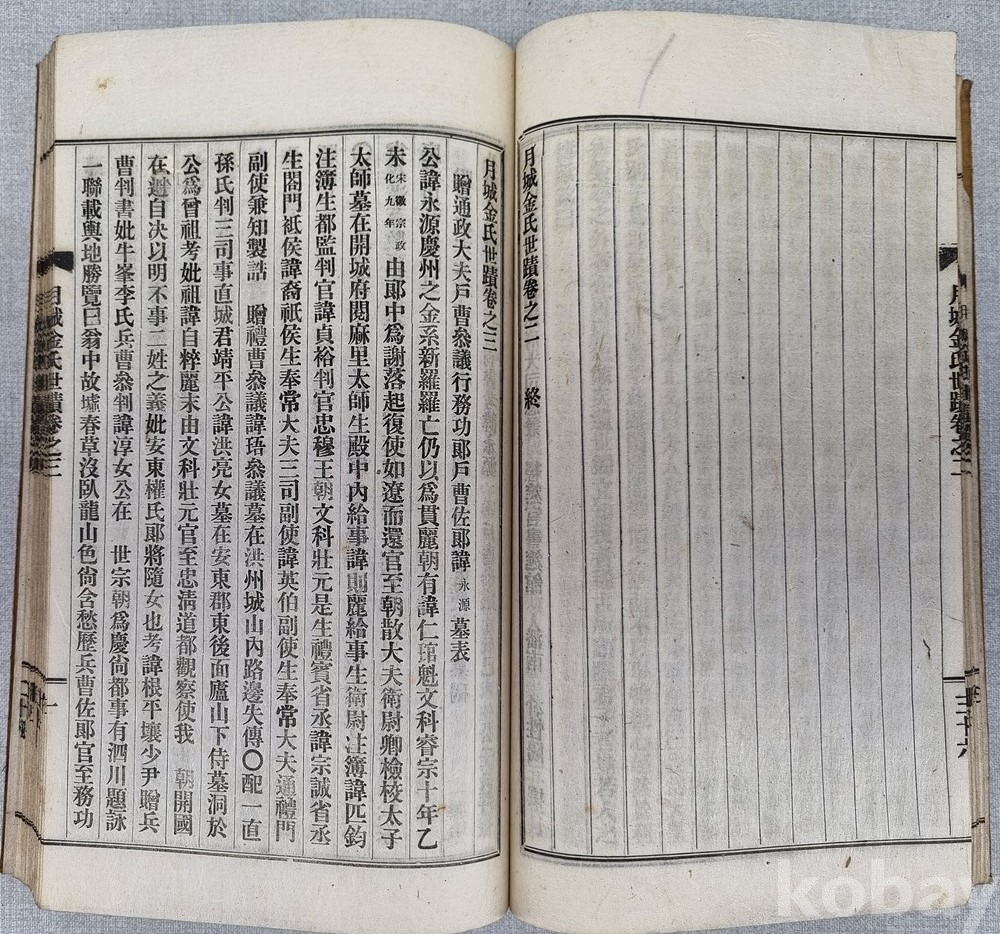 月城金氏世蹟卷之二
三十六
月城金氏世蹟卷之二 終
月城金氏世蹟卷之三
贈通政大夫戶曹叅議行務功郞戶曹佐郞諱永源墓表
公諱永源慶州之金系新羅羅亡仍以爲貫麗朝有諱仁琯魁文科睿宗十年乙
未宋徽宗政化九年由郞中爲謝落起復使如遼而還官至朝散大夫衛尉卿檢校太子
太師墓在開城府閱麻里太師生殿中內給事諱則麗給事生衛尉注簿諱匹鈞
注簿生都監判官諱貞裕判官忠穆王朝文科壯元是生禮賓省丞諱宗誠省丞
生閤門祇侯諱裔祇侯生奉常大夫三司副使諱英伯副使生奉常大夫通禮門
副使兼知製誥 贈禮曹叅議諱珸叅議墓在洪州城山內路邊失傳〇配一直
孫氏判三司事直城君靖平公諱洪亮女墓在安東郡東後面廬山下侍墓洞於
公爲曾祖考妣祖諱自粹麗末由文科壯元官至忠淸道都觀察使我 朝開國
在邇自决以明不事二姓之義妣安東權氏郞將隨女也考諱根平壤少尹贈兵
曹判書妣牛峯李氏兵曹叅判諱淳女公在 世宗朝爲慶尙都事有泗川題詠
一聯載輿地勝覽曰翁中故墟春草沒臥龍山色尙含愁歷兵曹佐郞官至務功
月城金氏世蹟卷之三